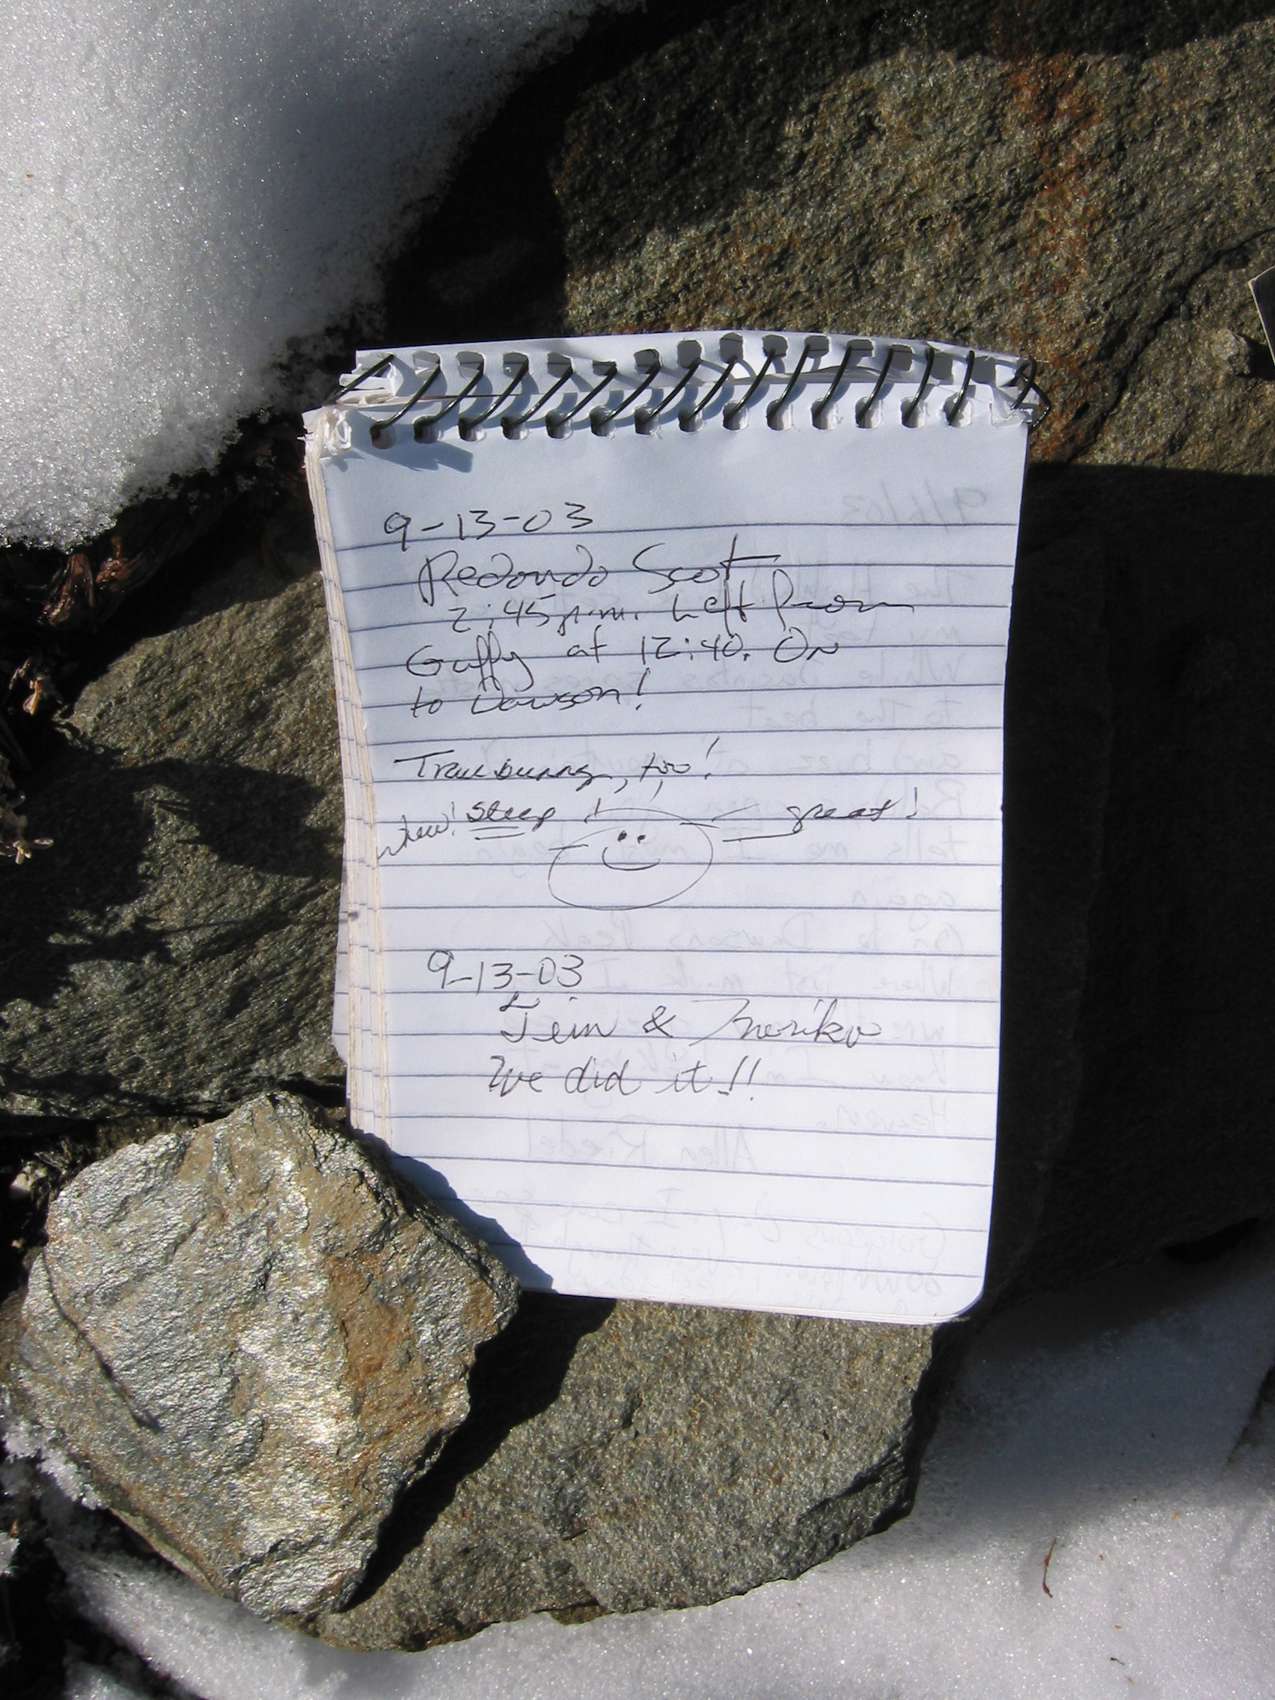 9-13-03
Redondo Scot
2:45 p.m. Left from
Guffy at 12:40. On
to Dawson!
Trailbunny, too!
whew! steep! great!
9-13-03
& Noriko
We did it!!